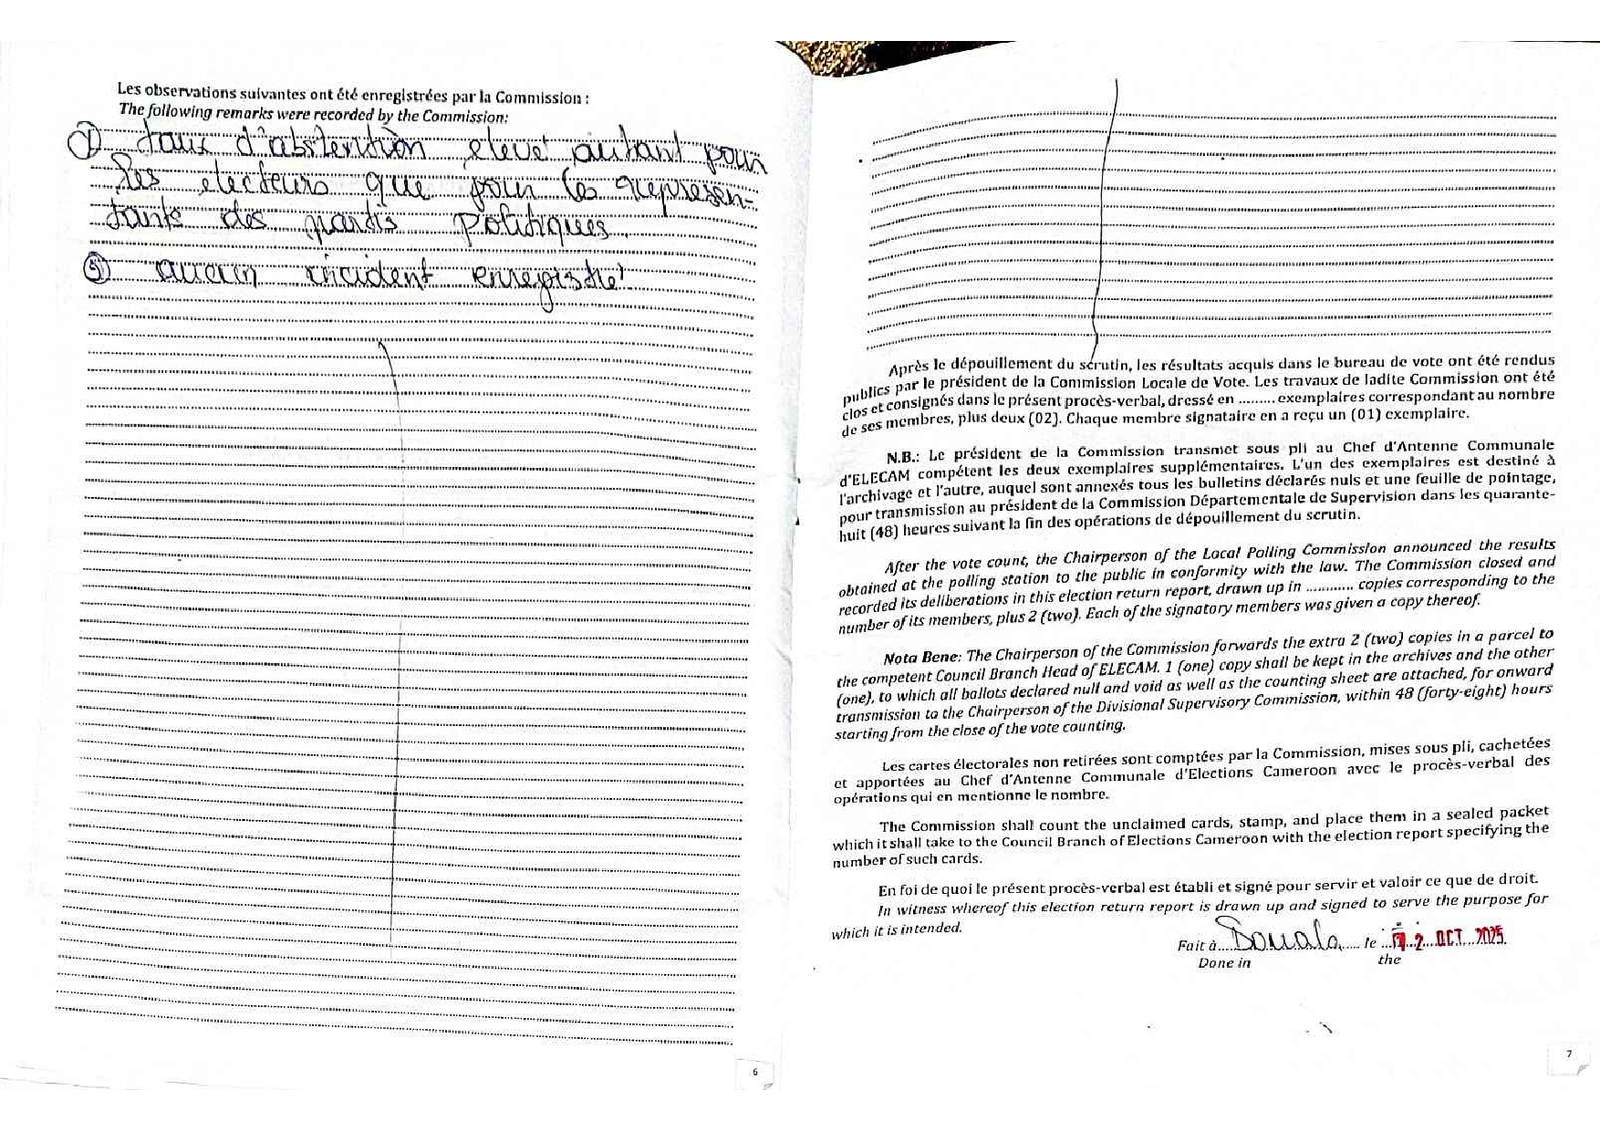 Les observations suivantes ont été enregistrées par la Commission :
The following remarks were recorded by the Commission:
① taux d'abstention élevé autant pour
les electeurs que pour les représen-
tants des partis politiques
aucun incident enregistré
6
Après le dépouillement du scrutin, les résultats acquis dans le bureau de vote ont été rendus
publics par le président de la Commission Locale de Vote. Les travaux de ladite Commission ont été
clos et consignés dans le présent procès-verbal, dressé en ......... exemplaires correspondant au nombre
de ses membres, plus deux (02). Chaque membre signataire en a reçu un (01) exemplaire.
N.B.: Le président de la Commission transmet sous pli au Chef d'Antenne Communale
d'ELECAM compétent les deux exemplaires supplémentaires. L'un des exemplaires est destiné à
l'archivage et l'autre, auquel sont annexés tous les bulletins déclarés nuls et une feuille de pointage,
pour transmission au président de la Commission Départementale de Supervision dans les quarante-
huit (48) heures suivant la fin des opérations de dépouillement du scrutin.
After the vote count, the Chairperson of the Local Polling Commission announced the results
obtained at the polling station to the public in conformity with the law. The Commission closed and
recorded its deliberations in this election return report, drawn up in ........... copies corresponding to the
number of its members, plus 2 (two). Each of the signatory members was given a copy thereof.
Nota Bene: The Chairperson of the Commission forwards the extra 2 (two) copies in a parcel to
the competent Council Branch Head of ELECAM. 1 (one) copy shall be kept in the archives and the other
(one), to which all ballots declared null and void as well as the counting sheet are attached, for onward
transmission to the Chairperson of the Divisional Supervisory Commission, within 48 (forty-eight) hours
starting from the close of the vote counting.
Les cartes électorales non retirées sont comptées par la Commission, mises sous pli, cachetées
et apportées au Chef d'Antenne Communale d'Elections Cameroon avec le procès-verbal des
opérations qui en mentionne le nombre.
The Commission shall count the unclaimed cards, stamp, and place them in a sealed packet
which it shall take to the Council Branch of Elections Cameroon with the election report specifying the
number of such cards.
En foi de quoi le présent procès-verbal est établi et signé pour servir et valoir ce que de droit.
In witness whereof this election return report is drawn up and signed to serve the purpose for
which it is intended.
Fait à Douala, le 12 OCT 2025
Done in the
7